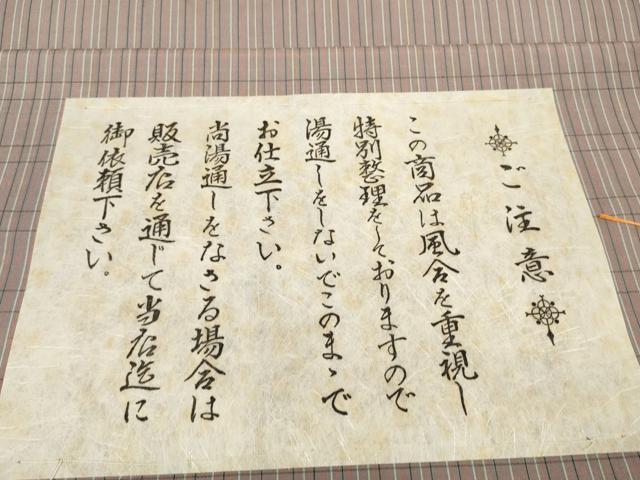 ご注意
この商品は風合を重視し
特別整理をしておりますので
湯通しをしないでこのまゝで
お仕立下さい。
尚湯通しをなさる場合は
販売店を通じて当店迄に
御依頼下さい。